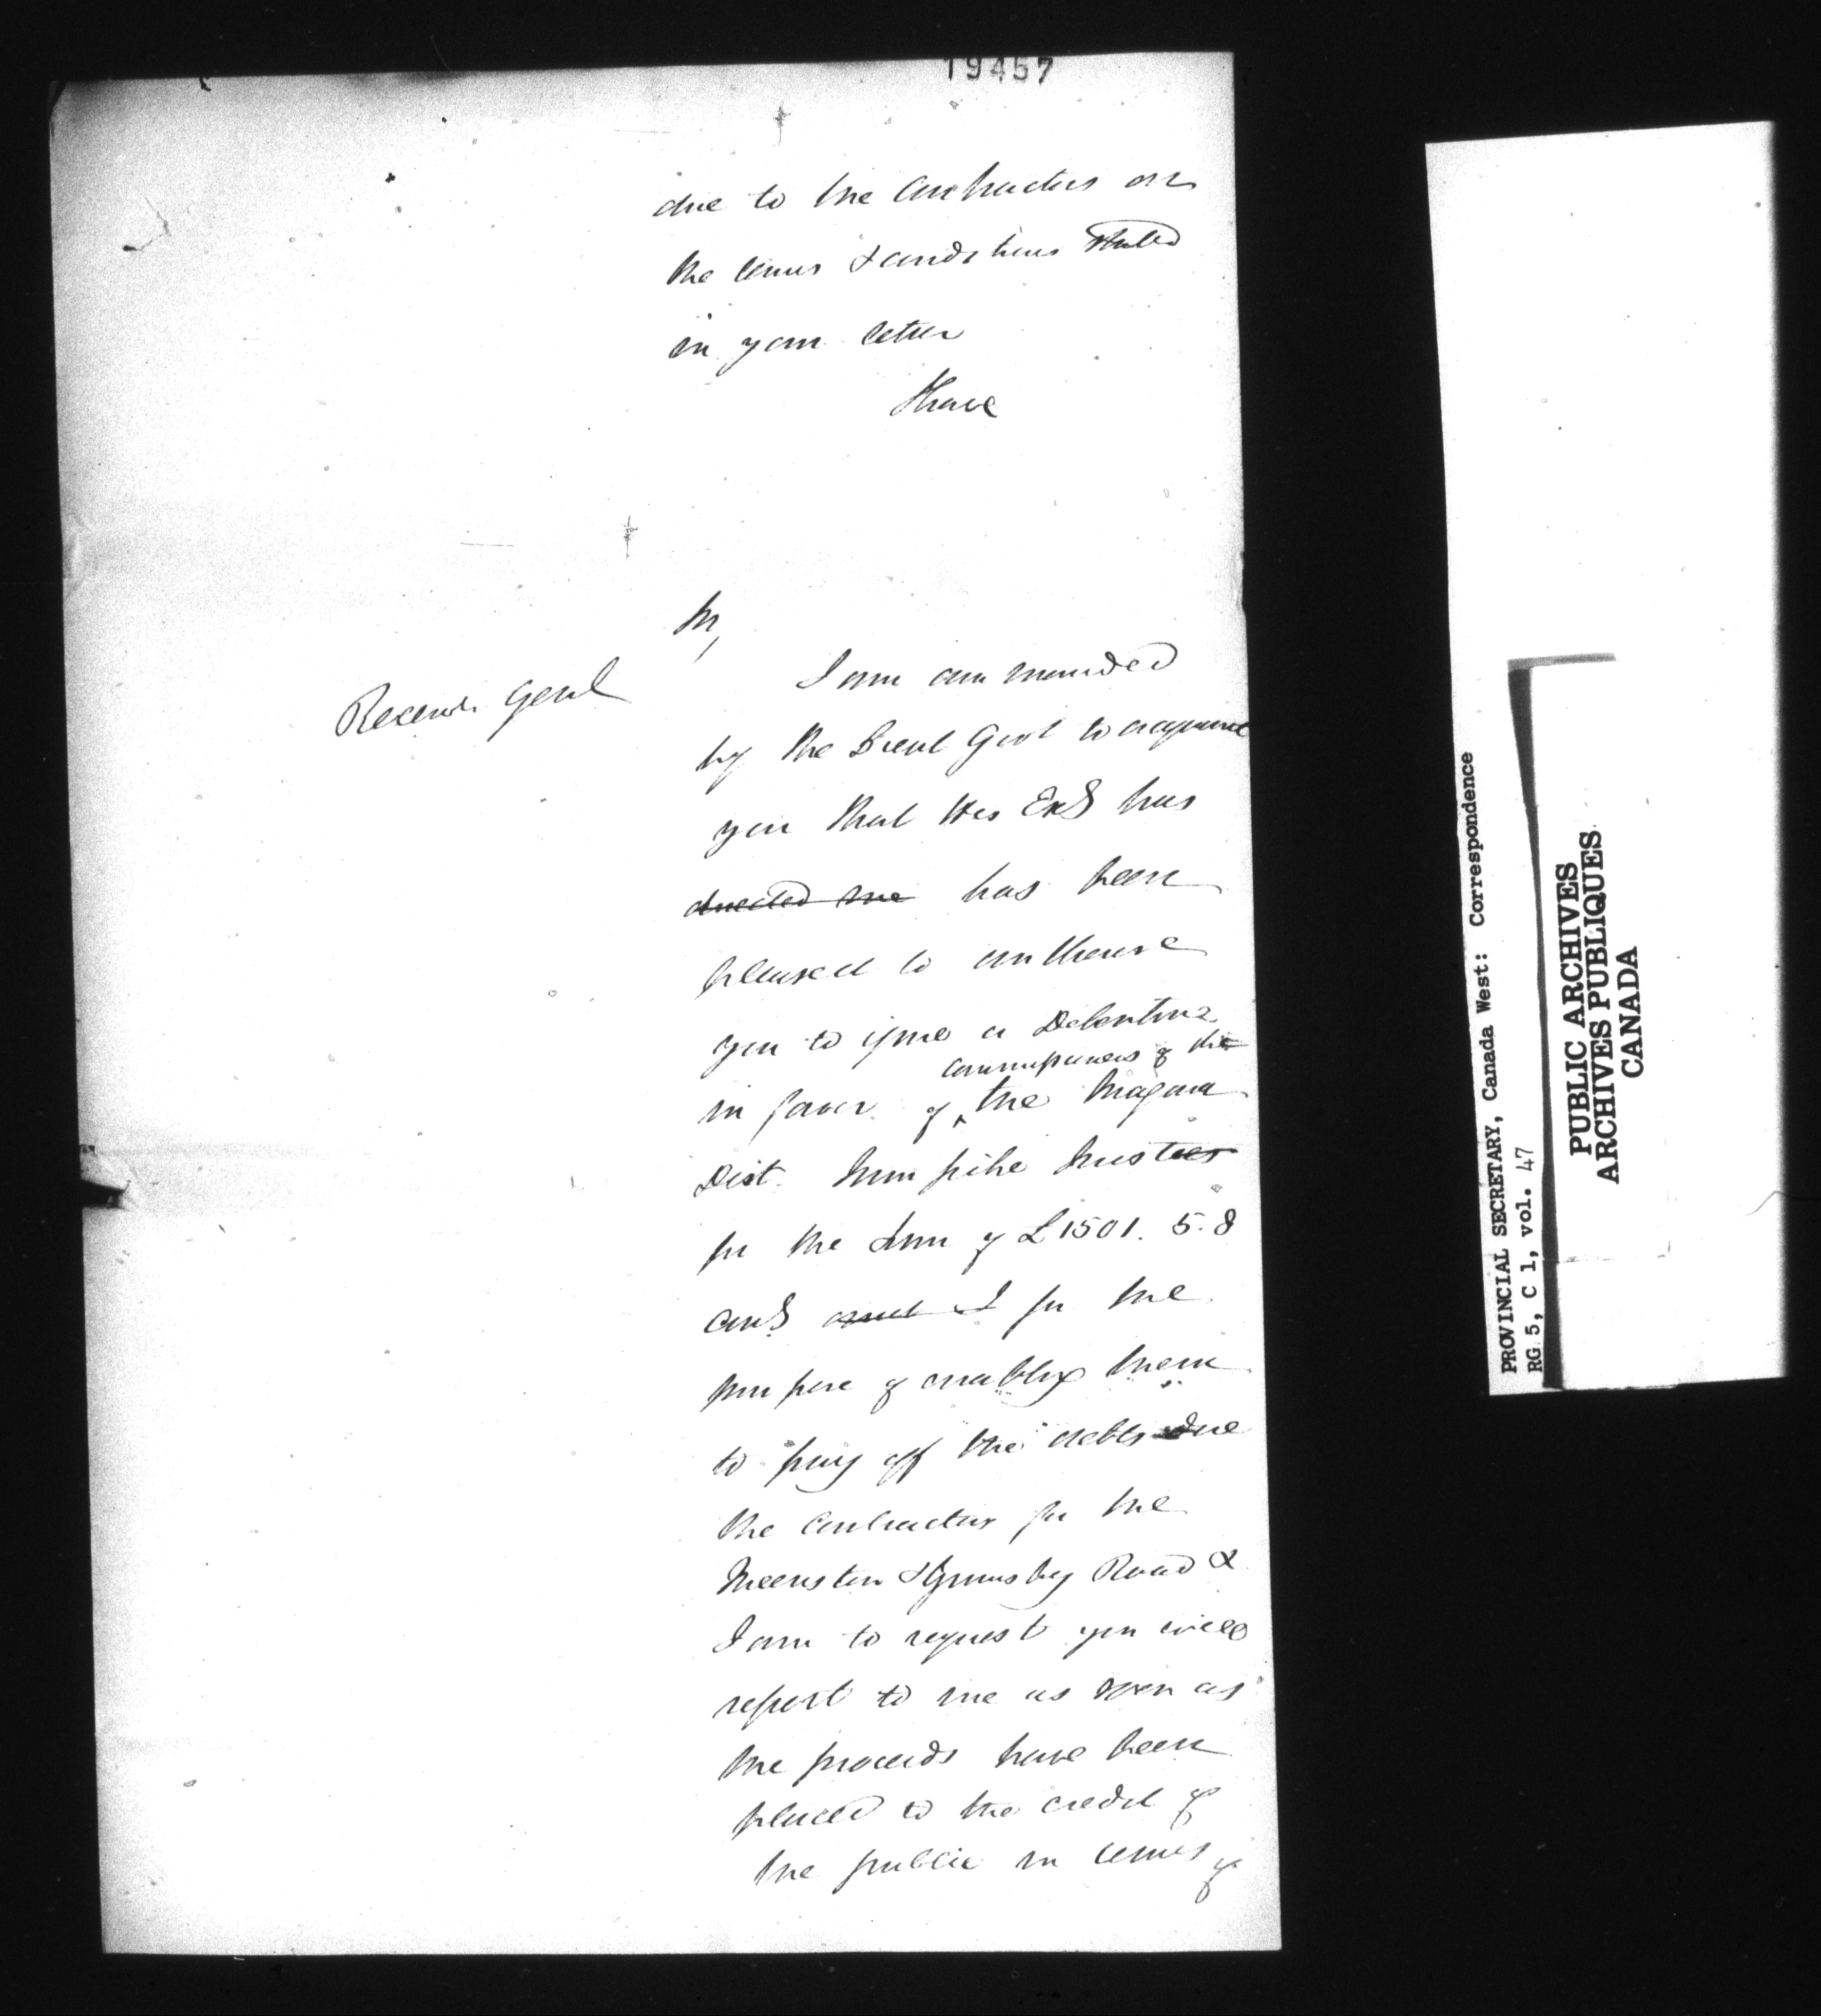 19457
due to the Contractors on
the terms & conditions stated
in your letter
I have
Sir,
I am commanded
Receiver Genl
by the Lieut Govr to acquaint
you that His Exc has
directed me has been
pleased to authorise
you to issue a Debenture
commissioners of the
in favor of the Niagara
Dist. Turnpike Trustees
for the sum of £1501. 5. 8
and for the
purpose of enabling them
to pay off the debts due
the Contractors for the
Queenston & Grimsby Road &
I am to request you will
report to me as soon as
the proceeds have been
placed to the credit of
the public in terms of
PROVINCIAL SECRETARY, Canada West: Correspondence
RG 5, C 1, vol. 47
PUBLIC ARCHIVES
ARCHIVES PUBLIQUES
CANADA